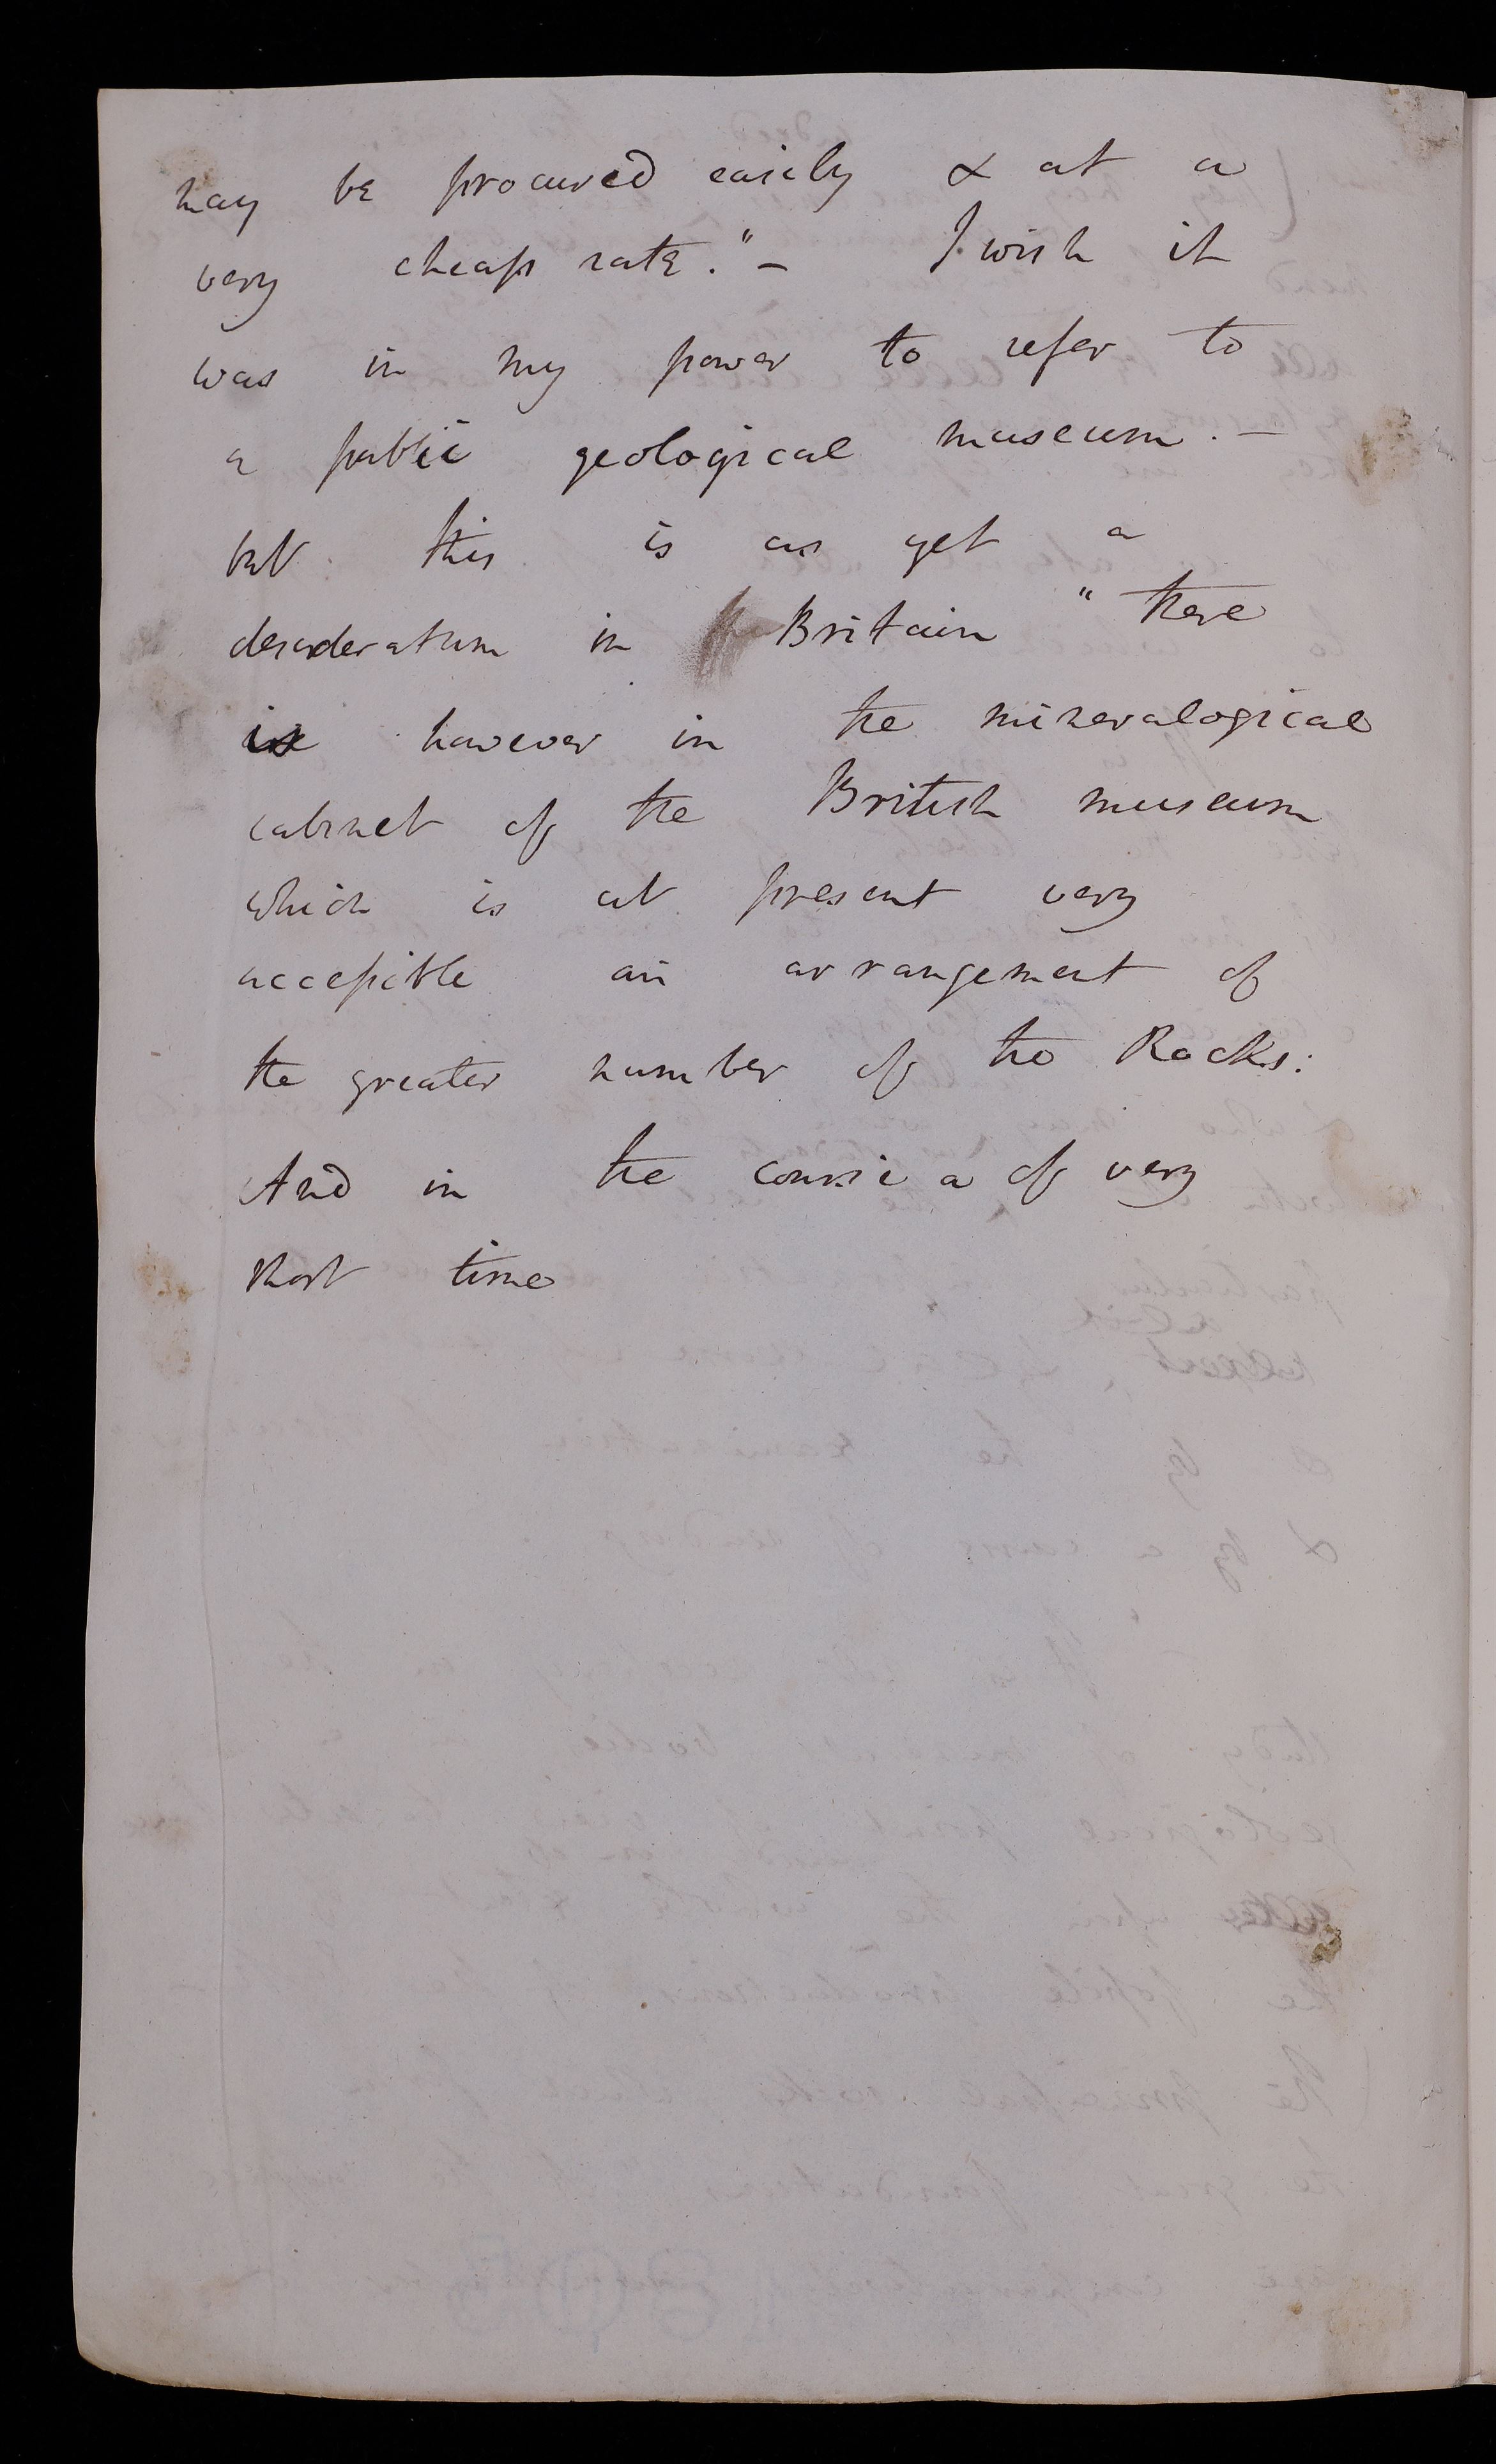 may be procured easily & at a
very cheap rate." — I wish it
was in my power to refer to
a public geological museum. —
but this is as yet a
desideratum in Britain " there
is however in the mineralogical
cabinet of the British museum
which is at present very
accessible an arrangement of
the greater number of the Rocks:
And in the course a of very
short time